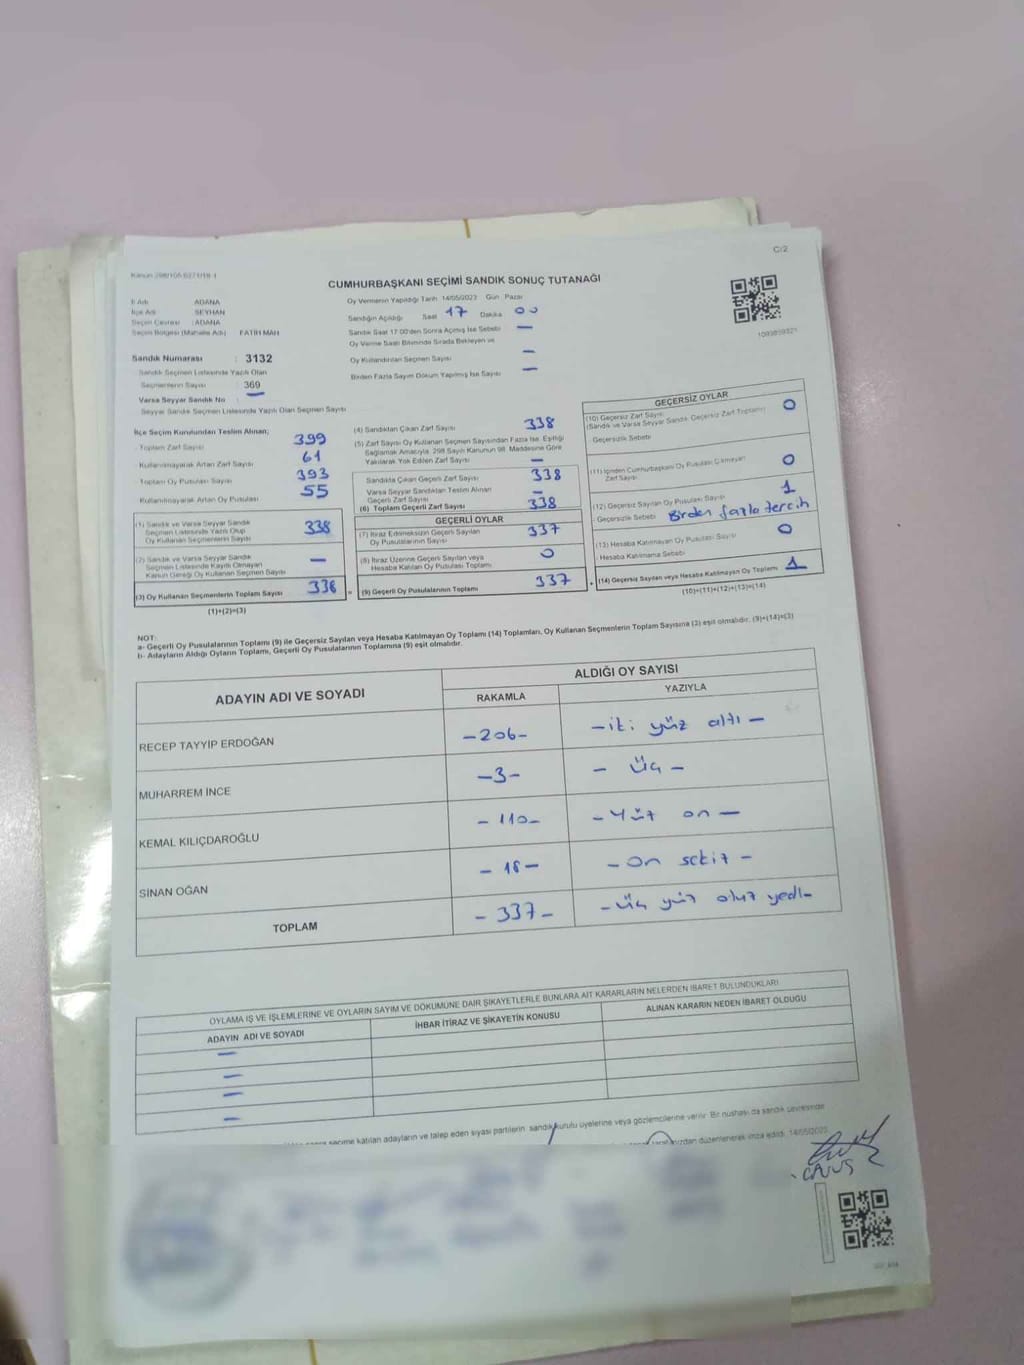 Kanun 298/105 6271/18-1
C/2
CUMHURBAŞKANI SEÇİMİ SANDIK SONUÇ TUTANAĞI
İl Adı ADANA
İlçe Adı SEYHAN
Seçim Çevresi : ADANA
Seçim Bölgesi (Mahalle Adı) FATİH MAH
Sandık Numarası : 3132
Sandık Seçmen Listesinde Yazılı Olan
Seçmenlerin Sayısı : 369
Varsa Seyyar Sandık No : —
Seyyar Sandık Seçmen Listesinde Yazılı Olan Seçmen Sayısı
Oy Vermenin Yapıldığı Tarih 14/05/2023 Gün Pazar
Sandığın Açıldığı Saat 17 Dakika 00
Sandık Saat 17:00'den Sonra Açılmış İse Sebebi —
Oy Verme Saati Bitiminde Sırada Bekleyen ve
Oy Kullandırılan Seçmen Sayısı —
Birden Fazla Sayım Döküm Yapılmış İse Sayısı —
1093859321
İlçe Seçim Kurulundan Teslim Alınan;
- Toplam Zarf Sayısı 399
- Kullanılmayarak Artan Zarf Sayısı 61
- Toplam Oy Pusulası Sayısı 393
- Kullanılmayarak Artan Oy Pusulası 55
(1) Sandık ve Varsa Seyyar Sandık
Seçmen Listesinde Yazılı Olup
Oy Kullanan Seçmenlerin Sayısı 338
(2) Sandık ve Varsa Seyyar Sandık
Seçmen Listesinde Kayıtlı Olmayan
Kanun Gereği Oy Kullanan Seçmen Sayısı —
(3) Oy Kullanan Seçmenlerin Toplam Sayısı 338 =
(1)+(2)=(3)
(4) Sandıktan Çıkan Zarf Sayısı 338
(5) Zarf Sayısı Oy Kullanan Seçmen Sayısından Fazla İse, Eşitliği
Sağlamak Amacıyla, 298 Sayılı Kanunun 98. Maddesine Göre
Yakılarak Yok Edilen Zarf Sayısı —
Sandıkta Çıkan Geçerli Zarf Sayısı 338
Varsa Seyyar Sandıktan Teslim Alınan
Geçerli Zarf Sayısı —
(6) Toplam Geçerli Zarf Sayısı 338
GEÇERLİ OYLAR
(7) İtiraz Edilmeksizin Geçerli Sayılan
Oy Pusulalarının Sayısı 337
(8) İtiraz Üzerine Geçerli Sayılan veya
Hesaba Katılan Oy Pusulası Toplamı 0
(9) Geçerli Oy Pusulalarının Toplamı 337 +
GEÇERSİZ OYLAR
(10) Geçersiz Zarf Sayısı
(Sandık ve Varsa Seyyar Sandık Geçersiz Zarf Toplamı) 0
- Geçersizlik Sebebi
(11) İçinden Cumhurbaşkanı Oy Pusulası Çıkmayan
Zarf Sayısı 0
(12) Geçersiz Sayılan Oy Pusulası Sayısı 1
- Geçersizlik Sebebi Birden fazla tercih
(13) Hesaba Katılmayan Oy Pusulası Sayısı 0
- Hesaba Katılmama Sebebi
(14) Geçersiz Sayılan veya Hesaba Katılmayan Oy Toplamı 1
(10)+(11)+(12)+(13)=(14)
NOT:
a- Geçerli Oy Pusulalarının Toplamı (9) ile Geçersiz Sayılan veya Hesaba Katılmayan Oy Toplamı (14) Toplamları, Oy Kullanan Seçmenlerin Toplam Sayısına (3) eşit olmalıdır. (9)+(14)=(3)
b- Adayların Aldığı Oyların Toplamı, Geçerli Oy Pusulalarının Toplamına (9) eşit olmalıdır.
ADAYIN ADI VE SOYADI ALDIĞI OY SAYISI
RAKAMLA YAZIYLA
RECEP TAYYİP ERDOĞAN -206- - iki yüz altı -
MUHARREM İNCE -3- - Üç -
KEMAL KILIÇDAROĞLU -110- - Yüz on -
SİNAN OĞAN -18- - On sekiz -
TOPLAM -337- - Üç yüz otuz yedi -
OYLAMA İŞ VE İŞLEMLERİNE VE OYLARIN SAYIM VE DÖKÜMÜNE DAİR ŞİKAYETLERLE BUNLARA AİT KARARLARIN NELERDEN İBARET BULUNDUKLARI
ADAYIN ADI VE SOYADI İHBAR İTİRAZ VE ŞİKAYETİN KONUSU ALINAN KARARIN NEDEN İBARET OLDUĞU
—
—
—
—
seçime katılan adayların ve talep eden siyasi partilerin sandık kurulu üyelerine veya gözlemcilerine verilir. Bir nüshası da sandık çevresinde
düzenlenerek imza edildi. 14/05/2023